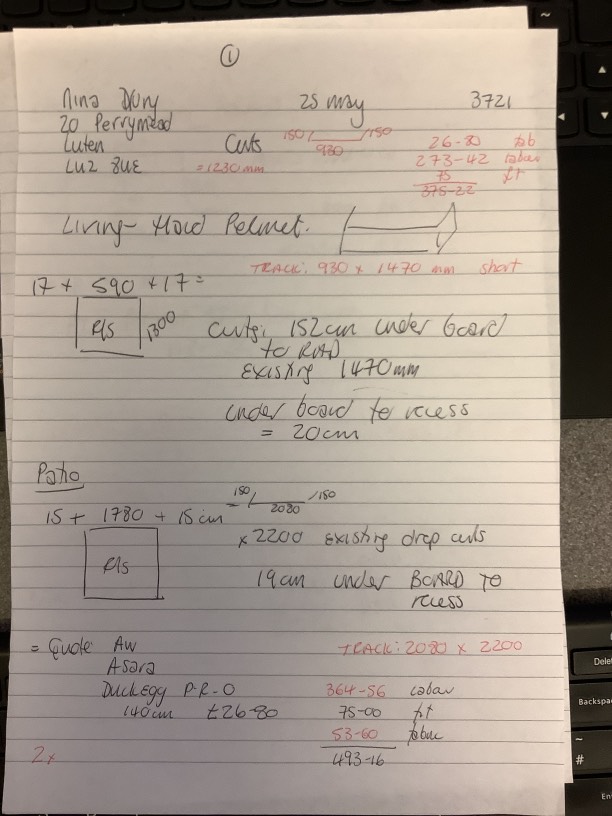 1
Nina Drury 25 May 3721
20 Perrymead
Luten Curts 150 / 930 / 150 26-80 fab
LU2 8UE = 1230 mm 273-42 labour
75 fit
375-22
Living - Hard Pelmet.
TRACK: 930 x 1470 mm short
17 + 590 + 17 =
R/s 1300 curts: 152cm under board
to ROAD
Existing 1470mm
under board to recess
= 20cm
Patio
150 / 2080 / 150
15 + 1780 + 15 cm =
x 2200 existing drop curts
R/s
19cm under BOARD TO
recess
= Quote AW TRACK: 2080 x 2200
Asara
Duckegg P-R-O 364-56 labour
140cm £26-80 75-00 fit
53-60 fabric
2x 493-16
~
Delete
Backspa
~
#
En